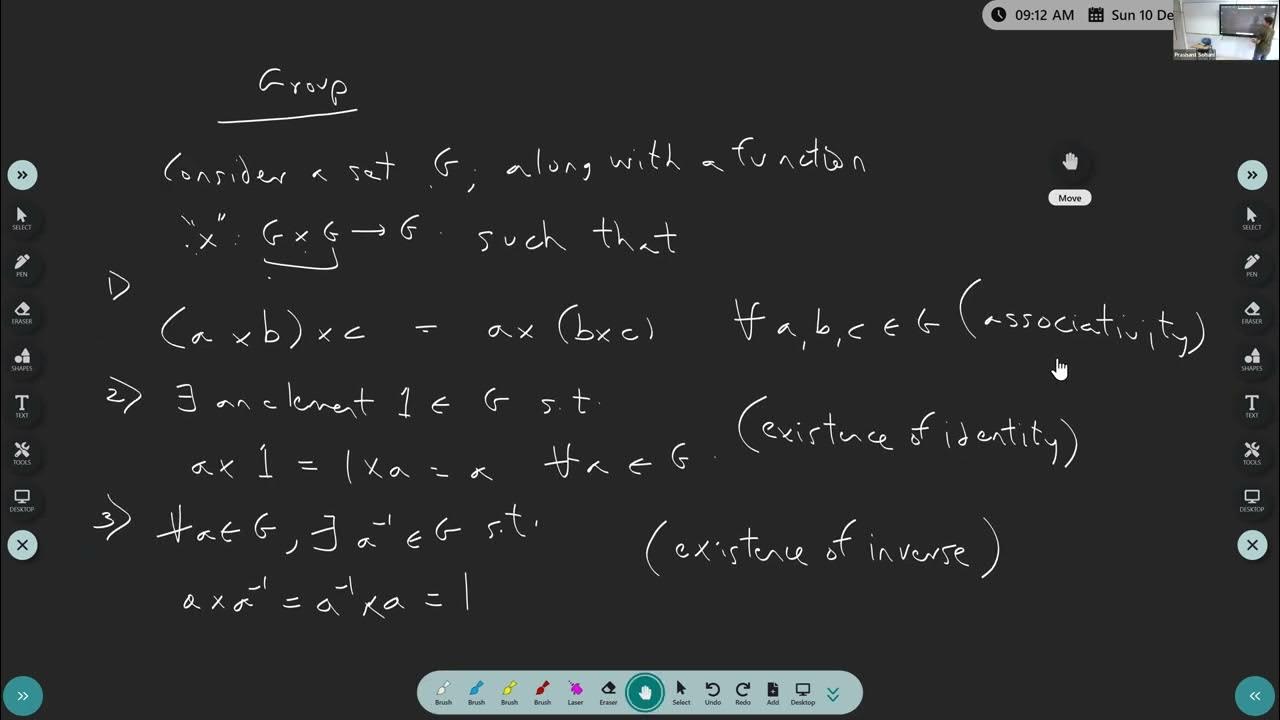 09:12 AM Sun 10 De
Prashant Sohani
Group
Consider a set G, along with a function
"x" : G x G → G . such that
1)
(a x b) x c = a x (b x c) ∀ a, b, c ∈ G (associativity)
2) ∃ an element 1 ∈ G s.t.
a x 1 = 1 x a = a ∀ a ∈ G . (existence of identity)
3) ∀ a ∈ G , ∃ a⁻¹ ∈ G s.t. (existence of inverse)
a x a⁻¹ = a⁻¹ x a = 1
Move
SELECT
PEN
ERASER
SHAPES
TEXT
TOOLS
DESKTOP
SELECT
PEN
ERASER
SHAPES
TEXT
TOOLS
DESKTOP
Brush Brush Brush Brush Laser Eraser Select Undo Redo Add Desktop